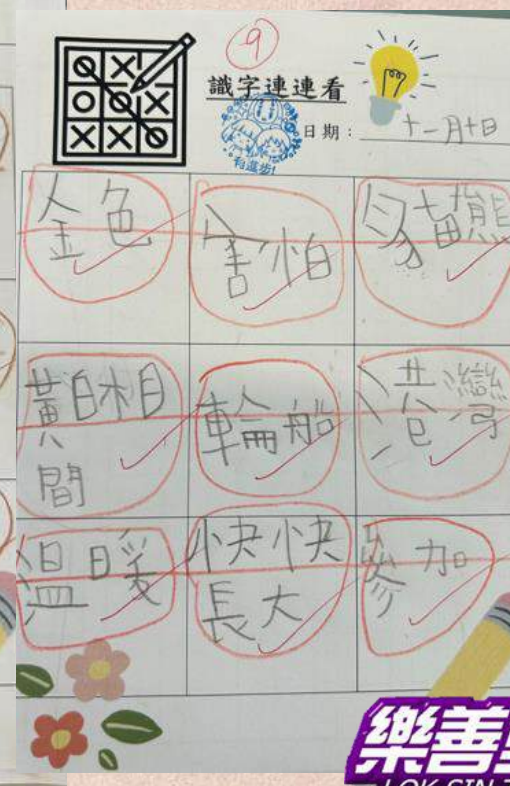 9
識字連連看
有進步!
日期: 十一月十日
金色
害怕
貓熊
黃白相
間
輪船
港灣
溫暖
快快
長大
參加
樂善
LOK SIN T